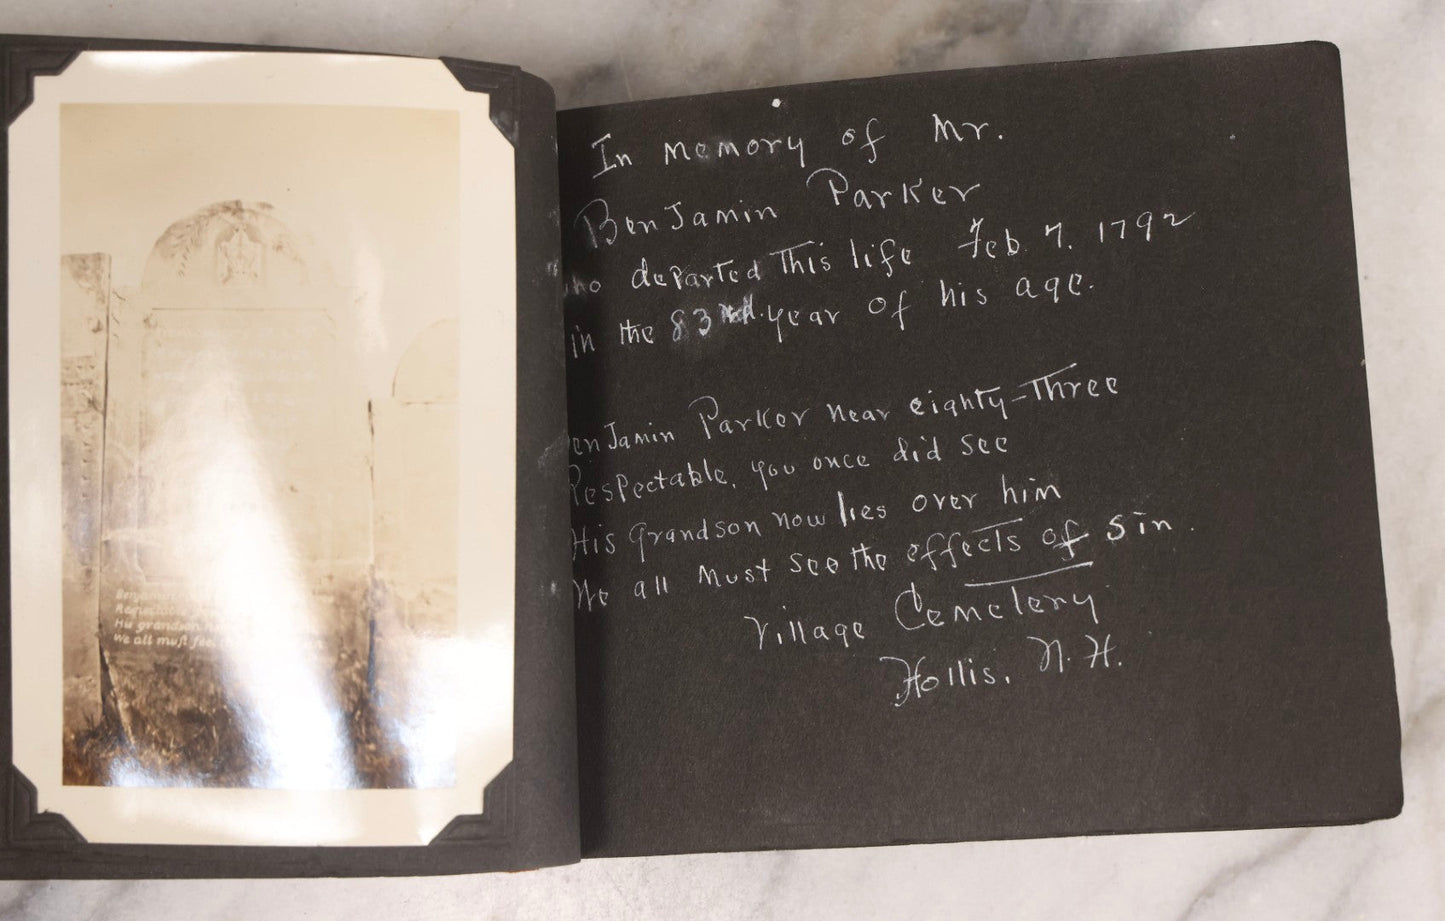 Benjamin
Respectable
His grandson
We all must see
In memory of Mr.
Benjamin Parker
who departed This life Feb. 7. 1792
in the 83rd. year of his age.
Benjamin Parker near eighty-Three
Respectable, you once did see
His grandson now lies over him
We all Must see the effects of Sin.
Village Cemetery
Hollis, N.H.